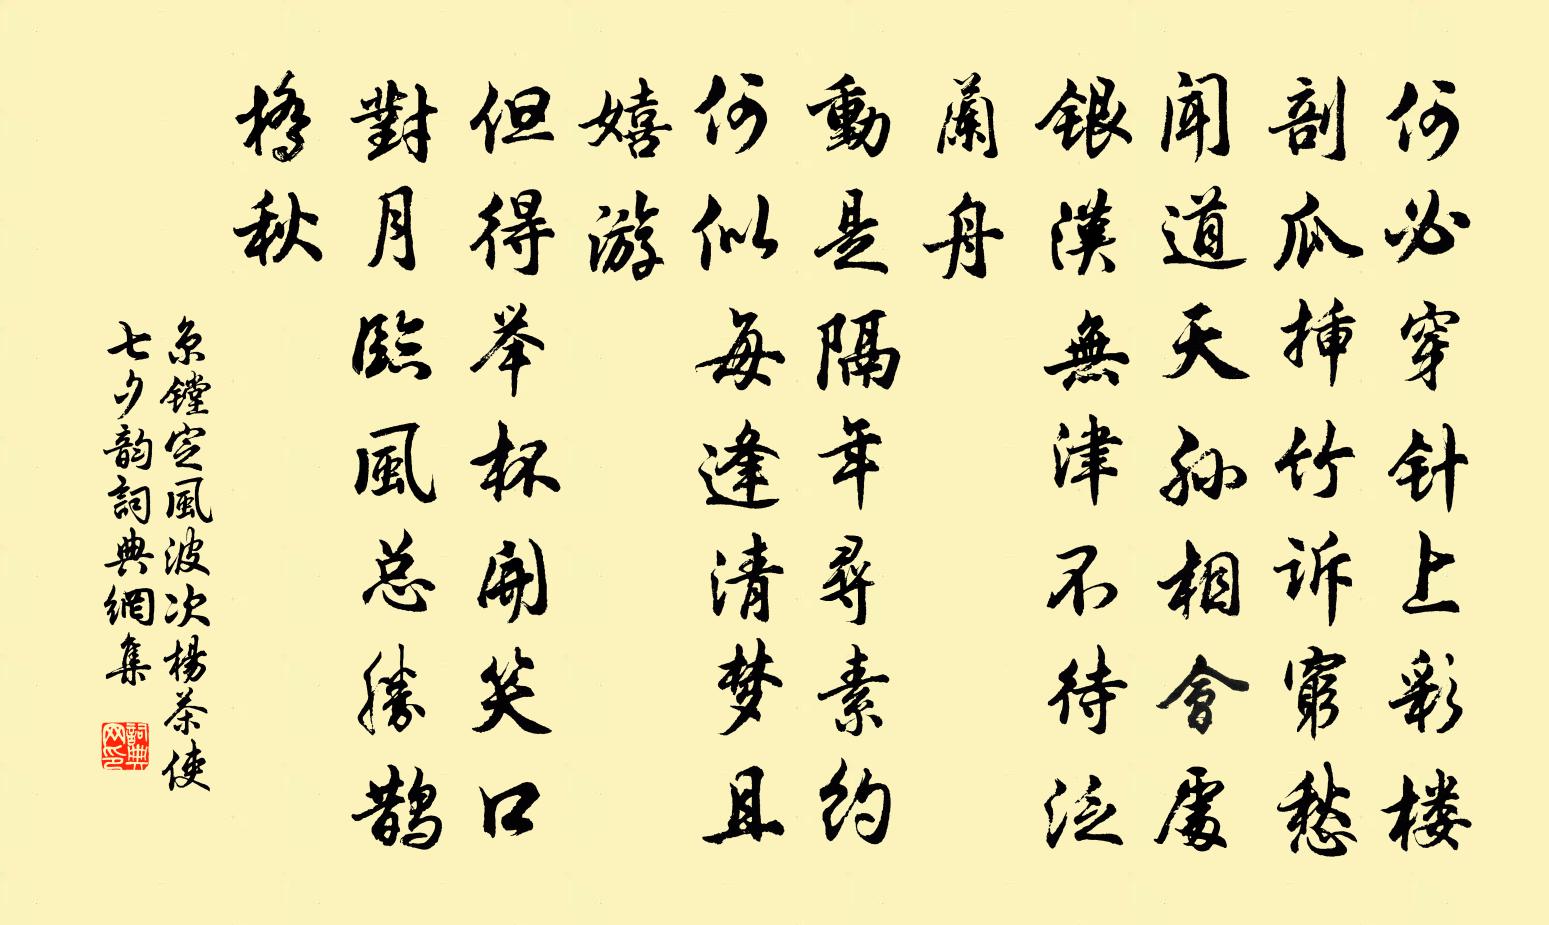 何必穿针上彩楼
剖瓜揷竹诉窮愁
闻道天孙相會處
銀漢無津不待泛
蘭舟
動是隔年尋素约
何似每逢清梦且
嬉游
但得举杯開笑口
對月臨風总勝鹊
橋秋
京镗定風波次楊茶使
七夕韵詞典網集
詞典网印